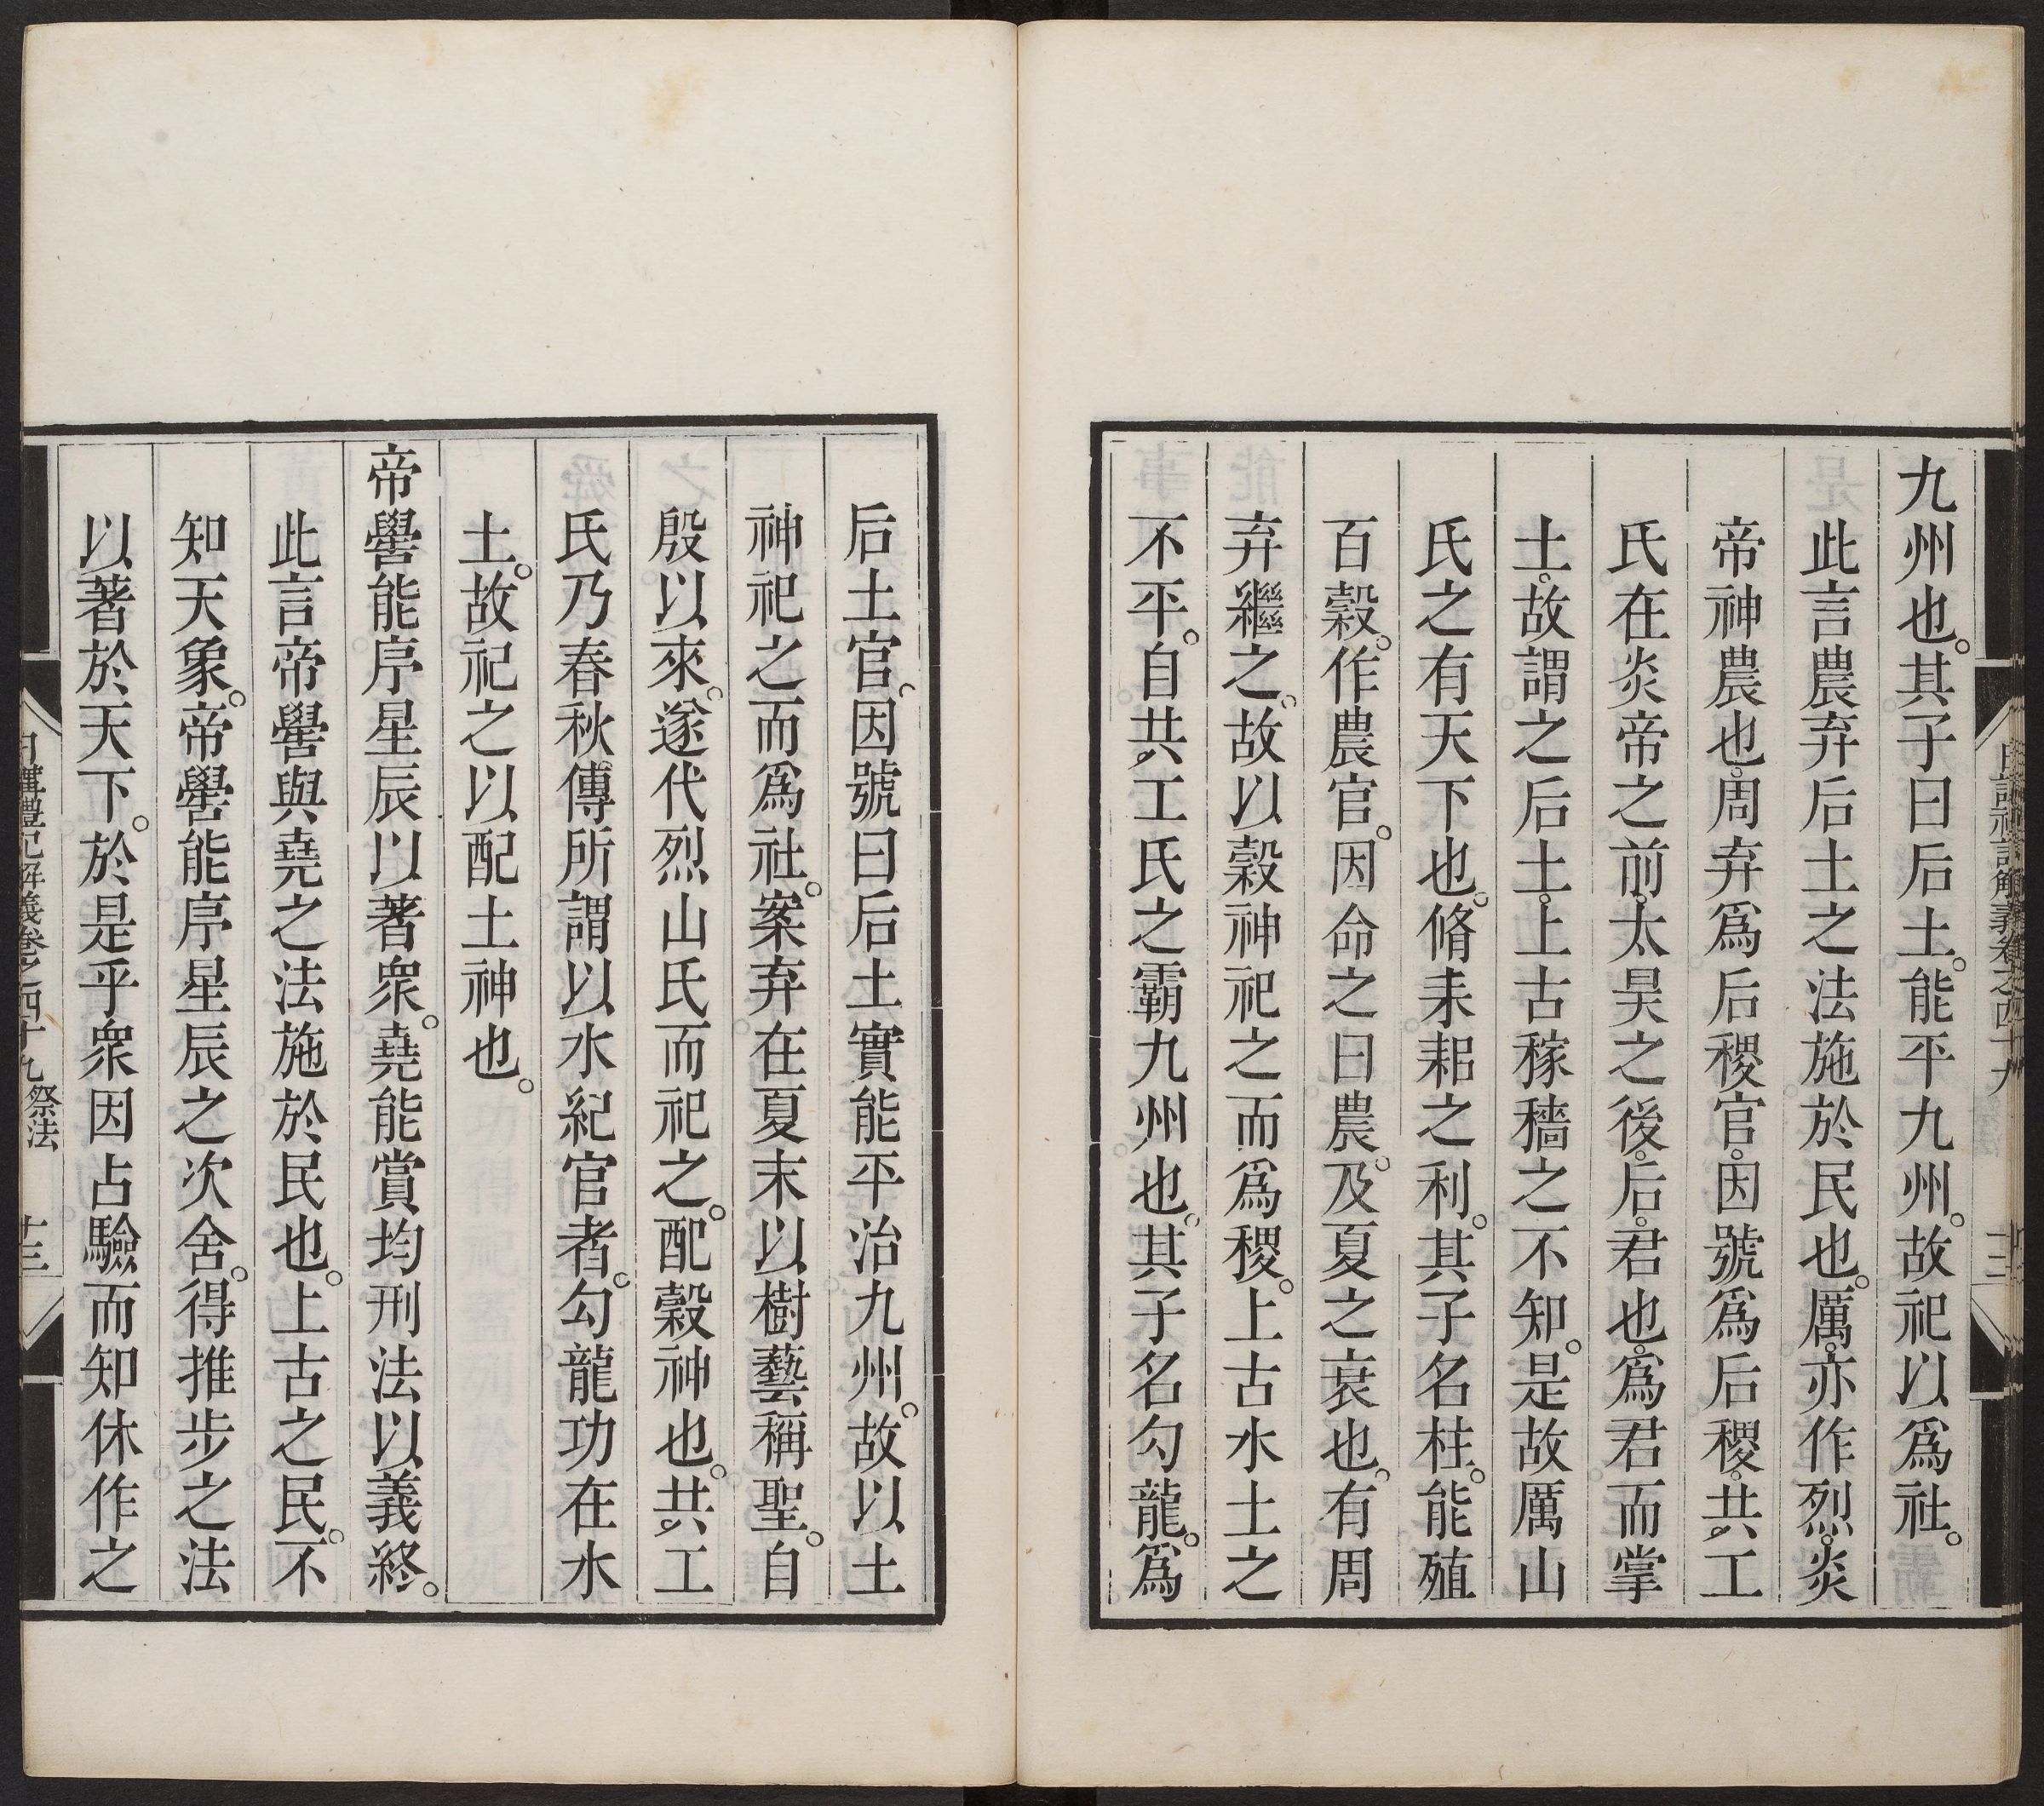 九州也。其子曰后土。能平九州。故祀以爲社。
此言農弃后土之法施於民也。厲。亦作烈。炎
帝神農也。周弃爲后稷官。因號爲后稷。共工
氏在炎帝之前。太昊之後。后。君也。爲君而掌
土。故謂之后土。上古稼穡之不知。是故厲山
氏之有天下也。脩耒耜之利。其子名柱。能殖
百穀。作農官。因命之曰農。及夏之衰也。有周
弃繼之。故以穀神祀之而爲稷。上古水土之
不平。自共工氏之霸九州也。其子名勾龍。爲
后土官。因號曰后土實能平治九州。故以土
神祀之而爲社。案弃在夏末以樹藝稱聖。自
殷以來。遂代烈山氏而祀之。配穀神也。共工
氏乃春秋傳所謂以水紀官者。勾龍功在水
土。故祀之以配土神也。
帝嚳能序星辰以著衆。堯能賞均刑法以義終。
此言帝嚳與堯之法施於民也。上古之民。不
知天象。帝嚳能序星辰之次舍。得推步之法
以著於天下。於是乎衆因占驗而知休作之
日講禮記解義卷之四十九 祭法 十三